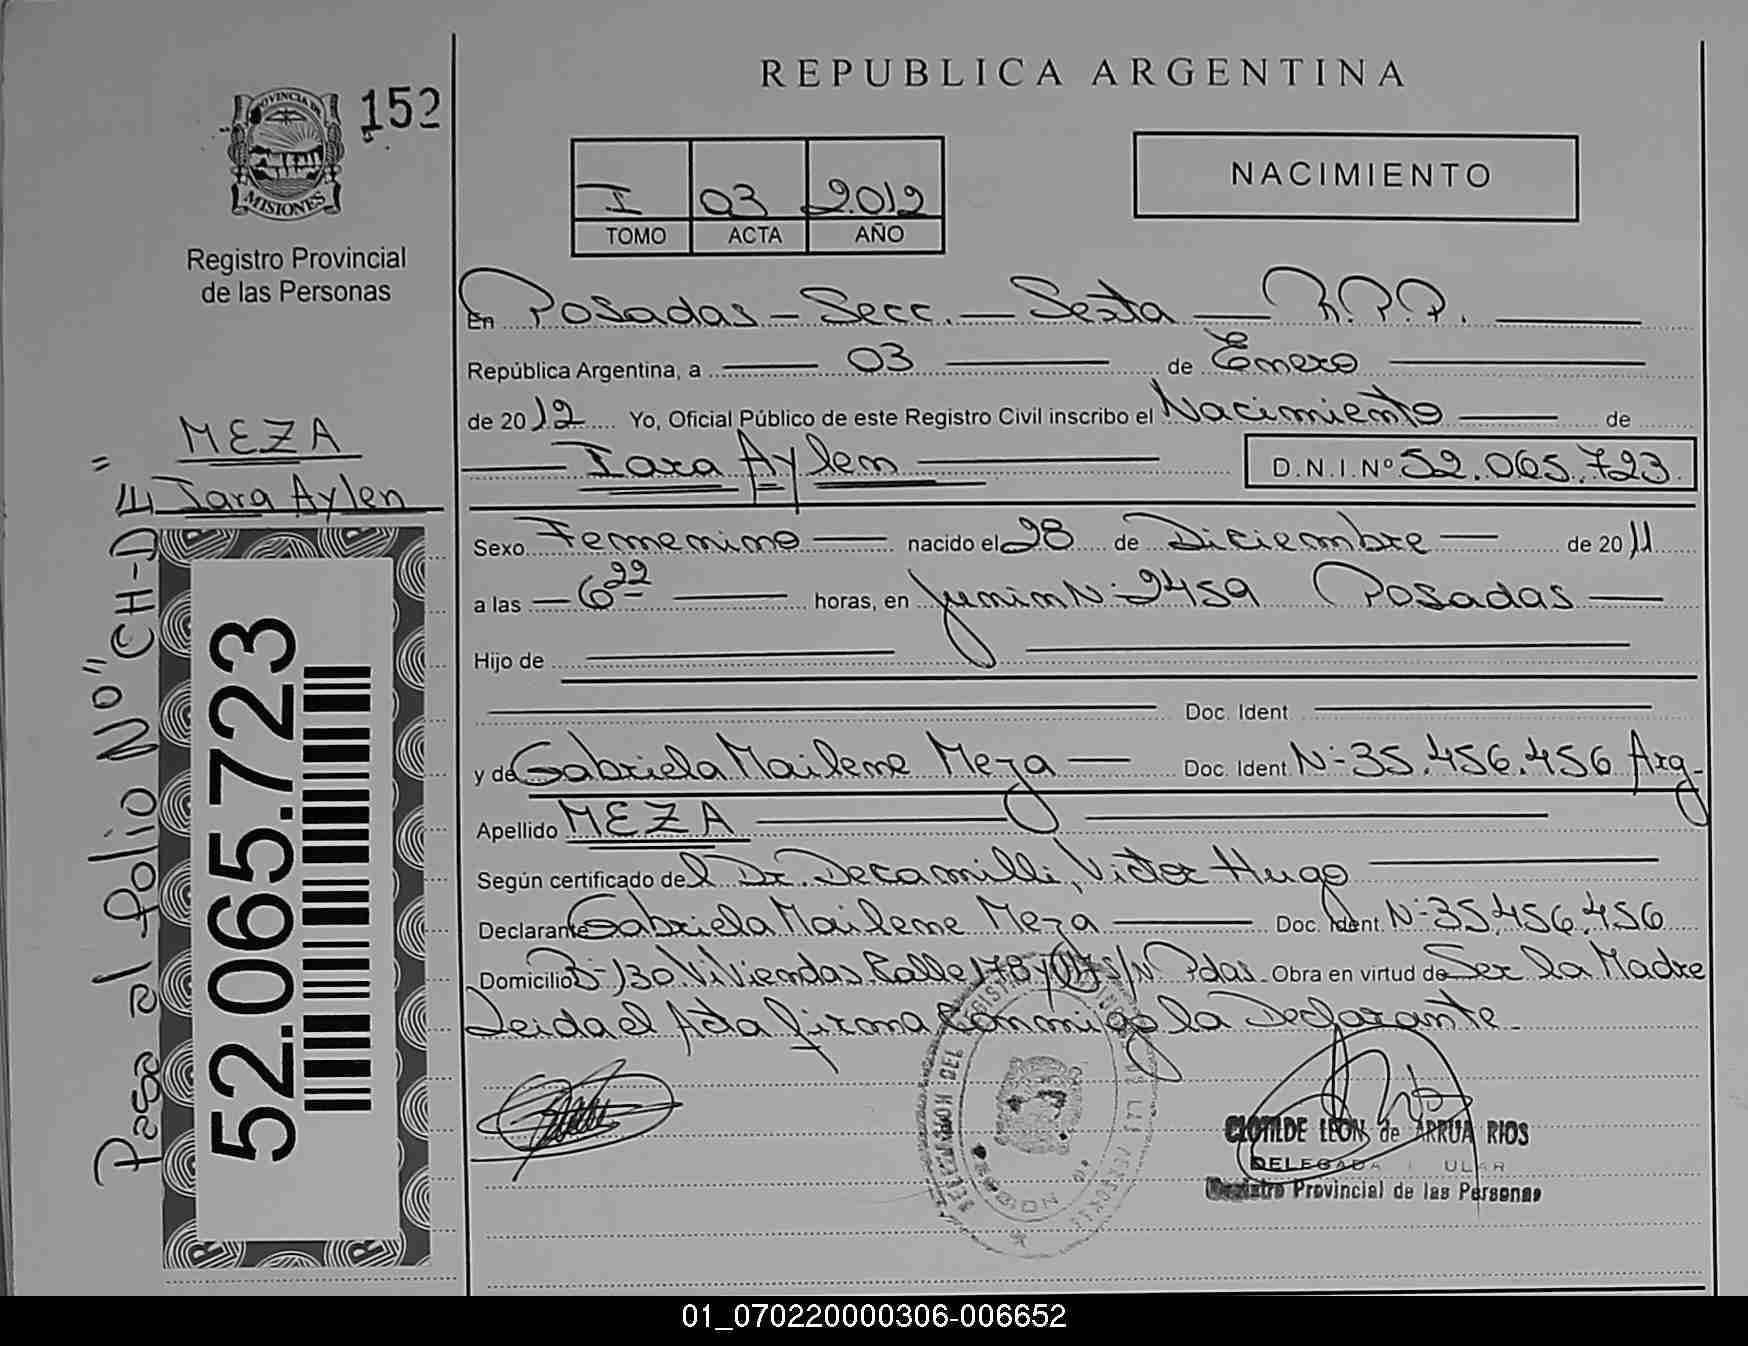 REPUBLICA ARGENTINA
PROVINCIA DE
MISIONES
152
Registro Provincial
de las Personas
I 03 2012
TOMO ACTA AÑO
NACIMIENTO
En Posadas - Secc. - Sexta - R.P.P.
República Argentina, a 03 de Enero
de 2012 Yo, Oficial Público de este Registro Civil inscribo el Nacimiento de
Iara Aylen D.N.I.Nº 52.065.723
MEZA
Iara Aylen
Pasa al folio Nº "CH-DE"
52.065.723
Sexo Femenino nacido el 28 de Diciembre de 2011
a las 6 22 horas, en Junin N: 2459 Posadas
Hijo de
Doc. Ident
y de Gabriela Mailene Meza Doc. Ident N: 35.456.456 Arg.
Apellido MEZA
Según certificado del Dr. Decamilli, Victor Hugo
Declarante Gabriela Mailene Meza Doc. Ident. N: 35.456.456
Domicilio B- 130 Viviendas Calle 178 y S/N. Pdas. Obra en virtud de Ser la Madre
Leida el Acta firma Conmigo la Declarante.
CLOTILDE LEON de ARRUA RIOS
DELEGADA
Registro Provincial de las Personas
01_070220000306-006652